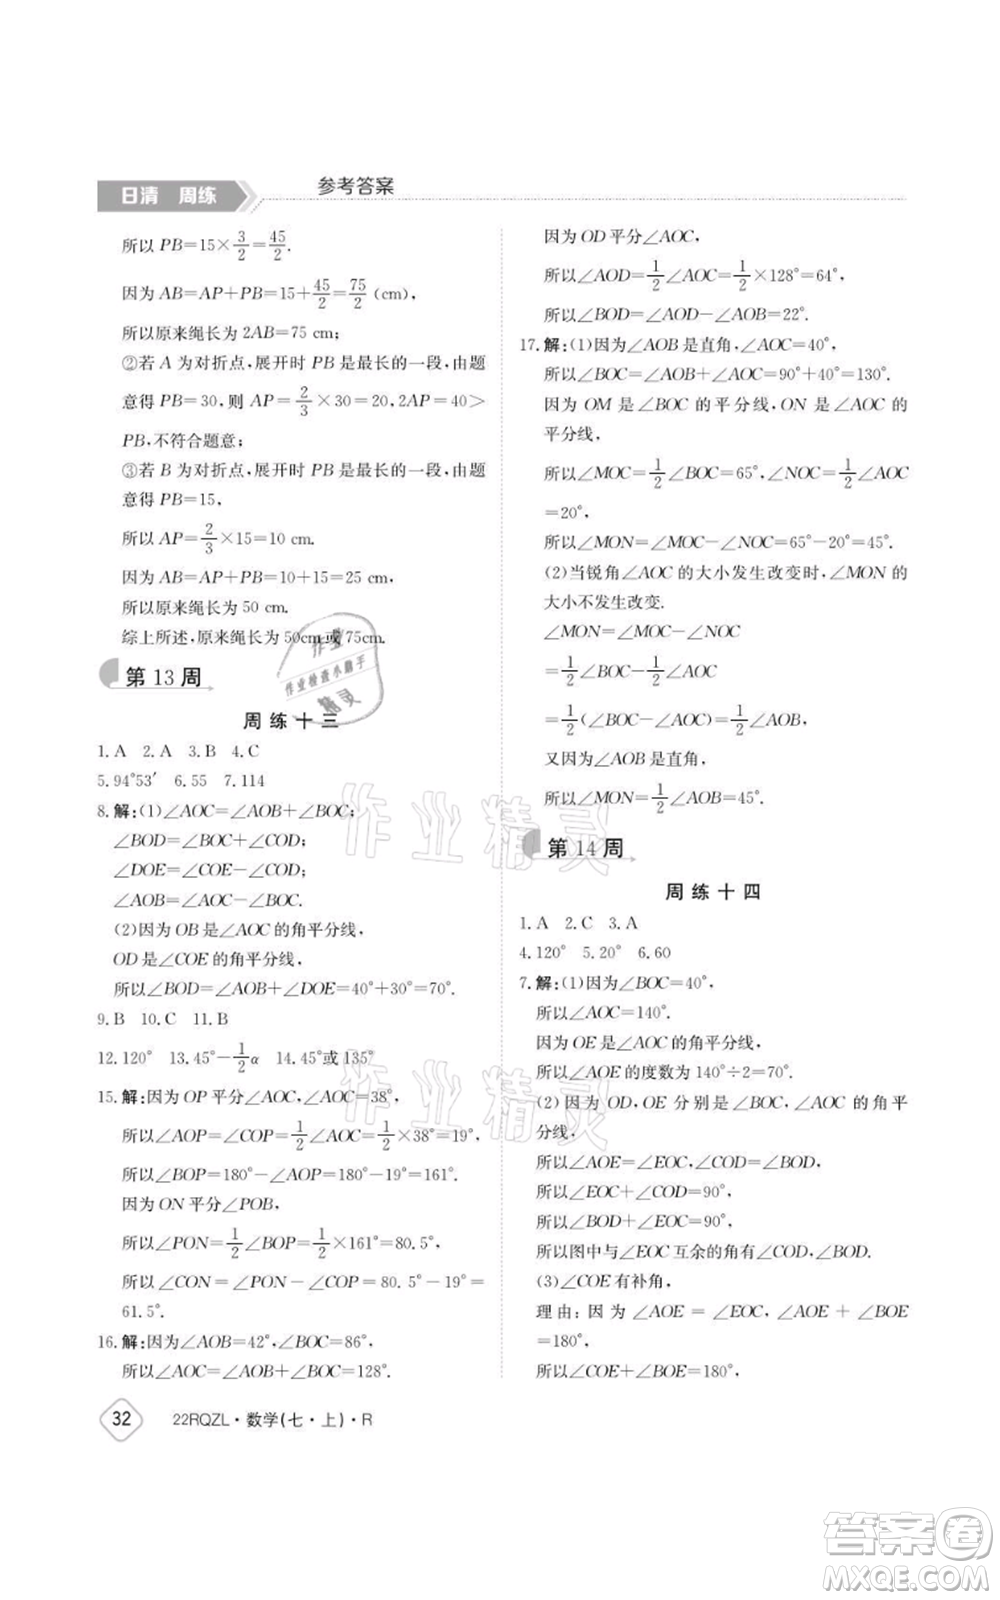 日清 周练
参考答案
所以 PB=15×3/2=45/2.
因为 AB=AP+PB=15+45/2=75/2(cm),
所以原来绳长为 2AB=75 cm;
②若 A 为对折点,展开时 PB 是最长的一段,由题
意得 PB=30,则 AP=2/3×30=20,2AP=40>
PB,不符合题意;
③若 B 为对折点,展开时 PB 是最长的一段,由题
意得 PB=15,
所以 AP=2/3×15=10 cm.
因为 AB=AP+PB=10+15=25 cm,
所以原来绳长为 50 cm.
综上所述,原来绳长为 50cm或75cm.
第 13 周
周 练 十 三
1. A 2. A 3. B 4. C
5. 94°53′ 6. 55 7. 114
8. 解:(1)∠AOC=∠AOB+∠BOC;
∠BOD=∠BOC+∠COD;
∠DOE=∠COE-∠COD;
∠AOB=∠AOC-∠BOC.
(2)因为 OB 是∠AOC 的角平分线,
OD 是∠COE 的角平分线,
所以∠BOD=∠AOB+∠DOE=40°+30°=70°.
9. B 10. C 11. B
12. 120° 13. 45°-1/2α 14. 45°或 135°
15. 解:因为 OP 平分∠AOC,∠AOC=38°,
所以∠AOP=∠COP=1/2∠AOC=1/2×38°=19°,
所以∠BOP=180°-∠AOP=180°-19°=161°.
因为 ON 平分∠POB,
所以∠PON=1/2∠BOP=1/2×161°=80.5°,
所以∠CON=∠PON-∠COP=80.5°-19°=
61.5°.
16. 解:因为∠AOB=42°,∠BOC=86°,
所以∠AOC=∠AOB+∠BOC=128°.
因为 OD 平分∠AOC,
所以∠AOD=1/2∠AOC=1/2×128°=64°,
所以∠BOD=∠AOD-∠AOB=22°.
17. 解:(1)因为∠AOB 是直角,∠AOC=40°,
所以∠BOC=∠AOB+∠AOC=90°+40°=130°.
因为 OM 是∠BOC 的平分线,ON 是∠AOC 的
平分线,
所以∠MOC=1/2∠BOC=65°,∠NOC=1/2∠AOC
=20°.
所以∠MON=∠MOC-∠NOC=65°-20°=45°.
(2)当锐角∠AOC 的大小发生改变时,∠MON 的
大小不发生改变.
∠MON=∠MOC-∠NOC
=1/2∠BOC-1/2∠AOC
=1/2(∠BOC-∠AOC)=1/2∠AOB,
又因为∠AOB 是直角,
所以∠MON=1/2∠AOB=45°.
第 14 周
周 练 十 四
1. A 2. C 3. A
4. 120° 5. 20° 6. 60
7. 解:(1)因为∠BOC=40°,
所以∠AOC=140°.
因为 OE 是∠AOC 的角平分线,
所以∠AOE 的度数为 140°÷2=70°.
(2)因为 OD,OE 分别是∠BOC,∠AOC 的角平
分线,
所以∠AOE=∠EOC,∠COD=∠BOD,
所以∠EOC+∠COD=90°,
所以∠BOD+∠EOC=90°,
所以图中与∠EOC 互余的角有∠COD,∠BOD.
(3)∠COE 有补角,
理由:因为∠AOE=∠EOC,∠AOE+∠BOE
=180°,
所以∠COE+∠BOE=180°,
32
22RQZL·数学(七·上)·R
作业
作业检查小助手
精灵
作业精灵
作业精灵
答案卷
MXQE.COM